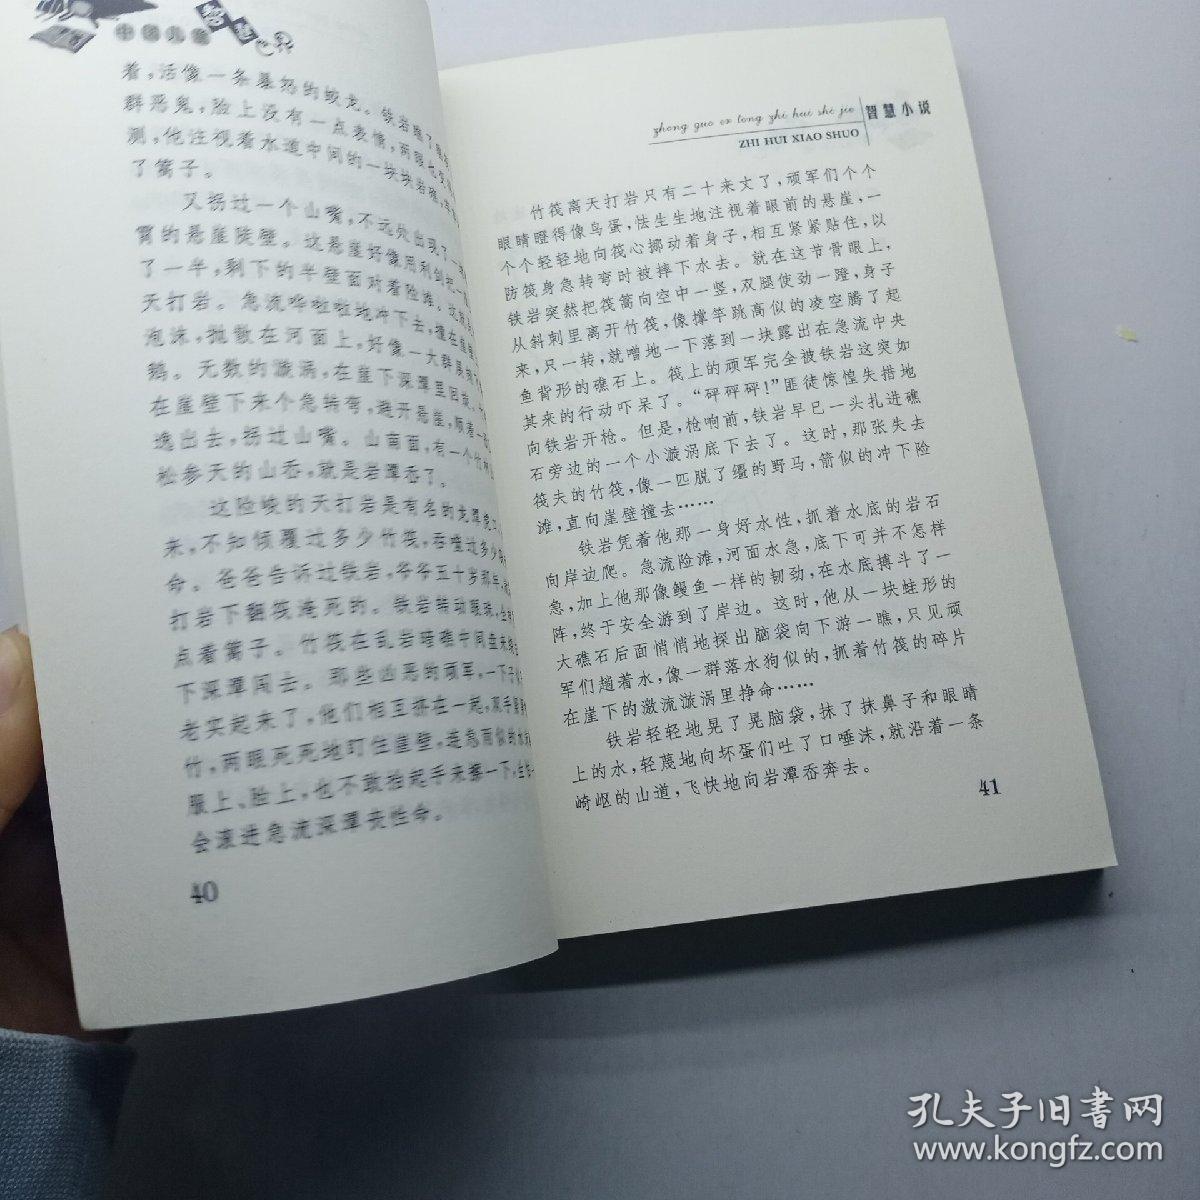 中国儿童
智慧
着，活像一条暴怒的蛟龙。铁岩瞧了
群恶鬼，脸上没有一点表情，两眼
测，他注视着水道中间的一块块岩礁，
了篙子。
又拐过一个山嘴，不远处出现了一
霄的悬崖陡壁。这悬崖好像用利剑把
了一半，剩下的半壁面对着险滩。这
天打岩。急流哗啦啦地冲下去，撞在
泡沫，抛散在河面上，好像一大群
鹅。无数的漩涡，在崖下深潭里回旋。
在崖壁下来个急转弯，避开悬崖，顺着
逸出去，拐过山嘴。山南面，有一个
松参天的山岙，就是岩潭岙了。
这险峻的天打岩是有名的龙潭虎
来，不知倾覆过多少竹筏，吞噬过多少
命。爸爸告诉过铁岩，爷爷五十岁那年，
打岩下翻筏淹死的。铁岩转动眼珠，
点着篙子。竹筏在乱岩暗礁中间
下深潭闯去。那些凶恶的顽军，一下子
老实起来了，他们相互挤在一起，双手
竹，两眼死死地盯住崖壁，连急雨似的水
服上、脸上，也不敢抬起手来擦一下，
会滚进急流深潭丧性命。
40
zhong guo er tong zhi hui shi jie
ZHI HUI XIAO SHUO
智慧小说
竹筏离天打岩只有二十来丈了，顽军们个个
眼睛瞪得像鸟蛋，怯生生地注视着眼前的悬崖，一
个个轻轻地向筏心挪动着身子，相互紧紧贴住，以
防筏身急转弯时被摔下水去。就在这节骨眼上，
铁岩突然把筏篙向空中一竖，双腿使劲一蹬，身子
从斜刺里离开竹筏，像撑竿跳高似的凌空腾了起
来，只一转，就噌地一下落到一块露出在急流中央
鱼背形的礁石上。筏上的顽军完全被铁岩这突如
其来的行动吓呆了。“砰砰砰！”匪徒惊惶失措地
向铁岩开枪。但是，枪响前，铁岩早已一头扎进礁
石旁边的一个小漩涡底下去了。这时，那张失去
筏夫的竹筏，像一匹脱了缰的野马，箭似的冲下险
滩，直向崖壁撞去……
铁岩凭着他那一身好水性，抓着水底的岩石
向岸边爬。急流险滩，河面水急，底下可并不怎样
急，加上他那像鳗鱼一样的韧劲，在水底搏斗了一
阵，终于安全游到了岸边。这时，他从一块蛙形的
大礁石后面悄悄地探出脑袋向下游一瞧，只见顽
军们趟着水，像一群落水狗似的，抓着竹筏的碎片
在崖下的激流漩涡里挣命……
铁岩轻轻地晃了晃脑袋，抹了抹鼻子和眼睛
上的水，轻蔑地向坏蛋们吐了口唾沫，就沿着一条
崎岖的山道，飞快地向岩潭岙奔去。
41
孔夫子旧书网
www.kongfz.com